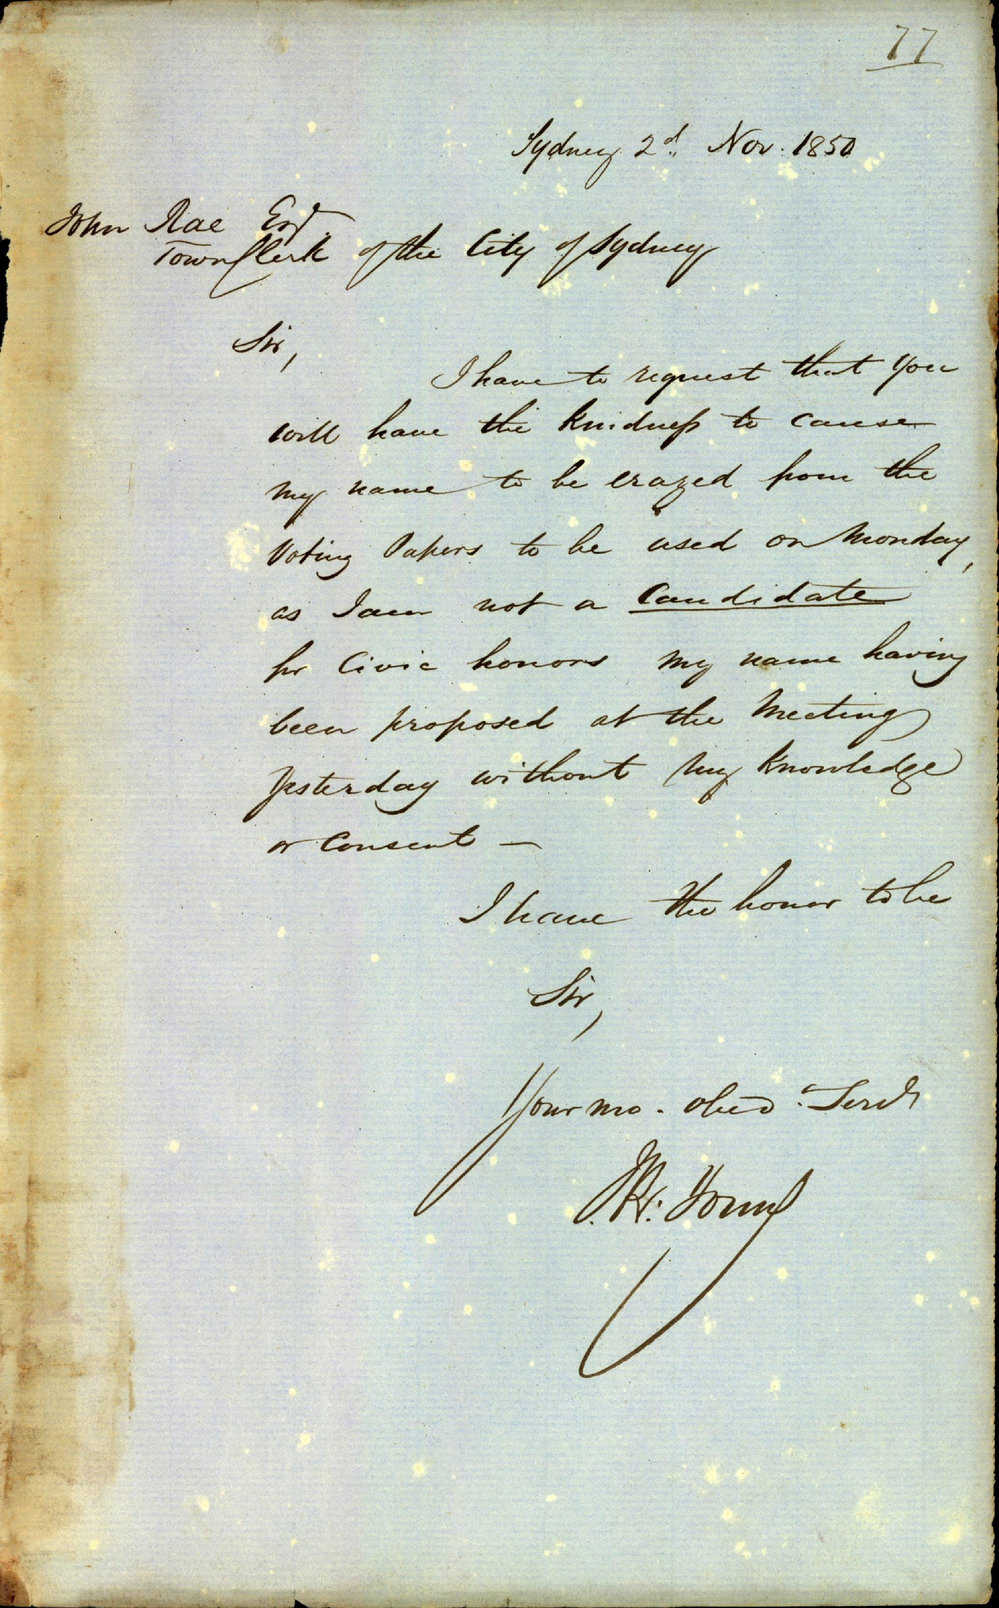 77
Sydney 2d. Nov. 1850
John Rae Esqr.
Town Clerk of the City of Sydney
Sir,
I have to request that you
will have the kindness to cause
my name to be erazed from the
Voting Papers to be used on Monday,
as I am not a Candidate
for Civic honors my name having
been proposed at the Meeting
yesterday without my knowledge
or Consent —
I have the honor to be
Sir,
Your mo. obed. Servt
Young